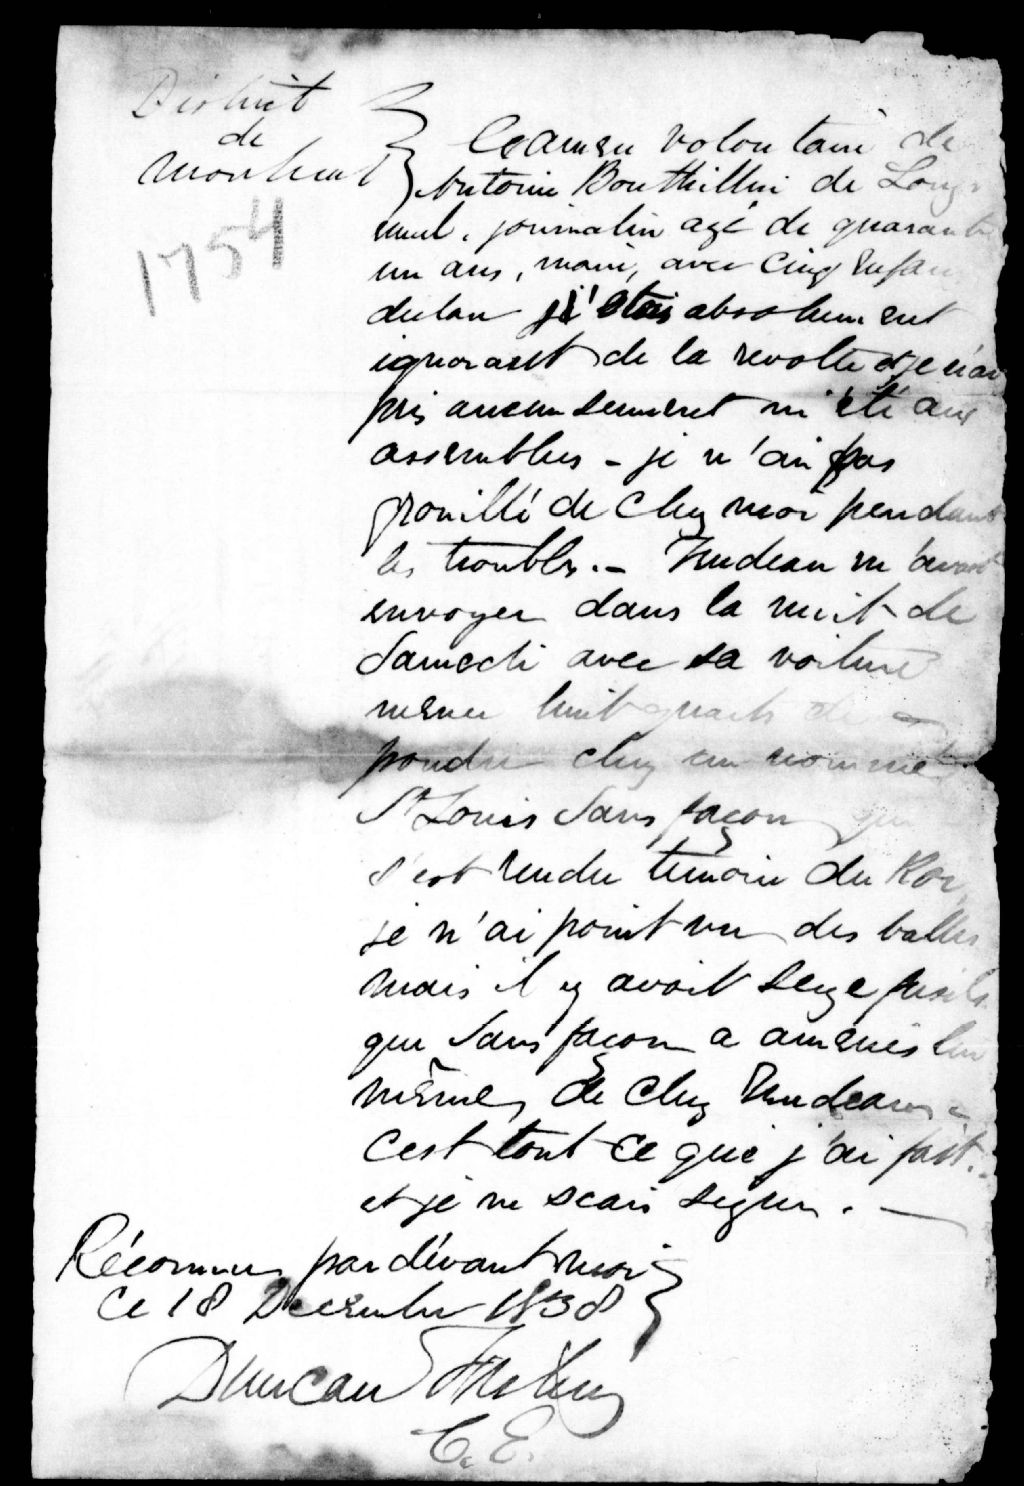 District
de
Montreal
1754
Examen volontaire de
Antoine Bouthillier de Longu
euil, journalier agé de quarante
un ans, marié, avec cinq enfans
declare j'étais absolument
ignorant de la revolte et je n'ai
pris aucun serment ni été aux
assemblées - je n'ai pas
grouillé de chez moi pendant
les troubles. - Trudeau m'avait
envoyer dans la nuit de
Samedi avec sa voiture
mener huit quarts de
poudre chez un nommé
St Louis Sans façon qui
s'est rendu temoin du Roi,
je n'ai point vu des balles
mais il y avoit seize fusils
que Sans façon a amenés lui
même de chez Trudeau -
c'est tout ce que j'ai fait.
et je ne scais signer. -
Réconnu par dévant moi
Ce 18 Decembre 1838
Duncan Fisher
C. E.